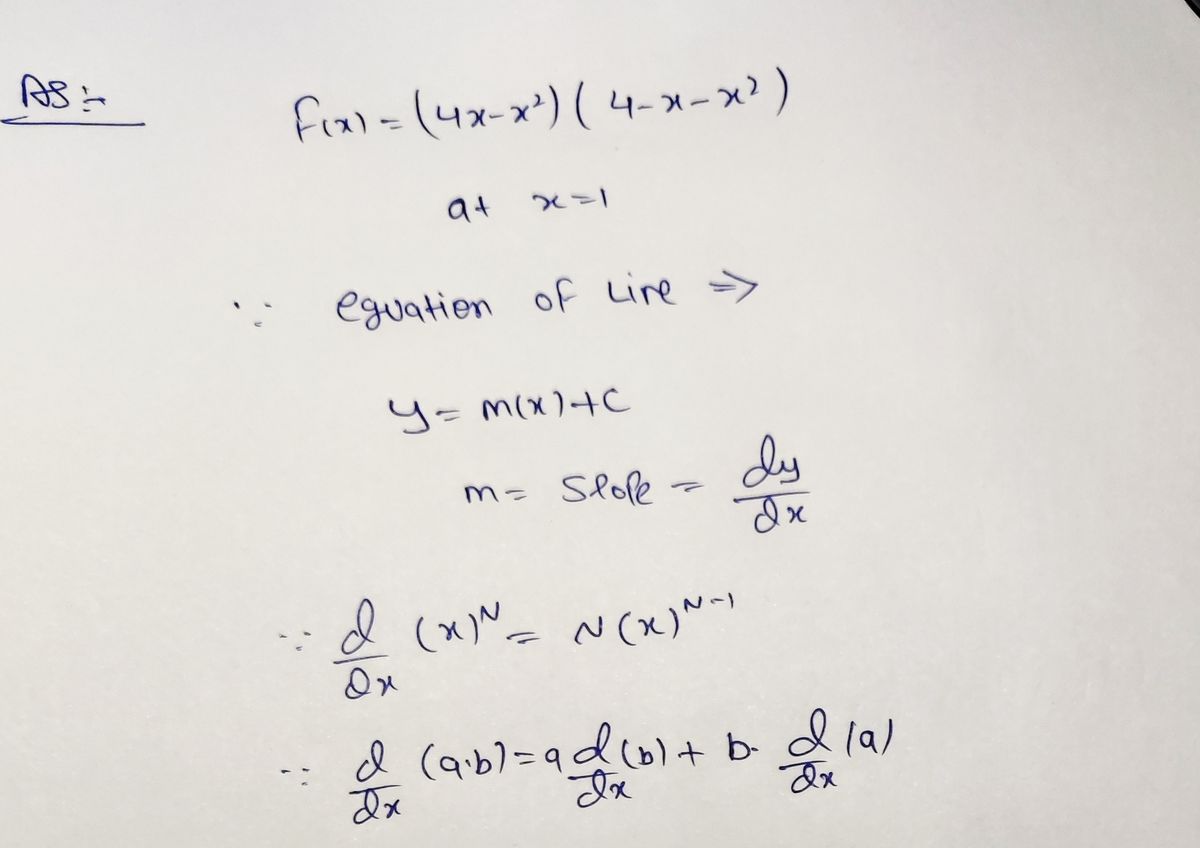 AS :-
f(x) = (4x-x²)( 4-x-x² )
at x=1
∵ equation of Line ⇒
y = m(x)+C
m = Slope = dy/dx
∵ d/dx (x)^N = N(x)^N-1
∵ d/dx (a·b) = a d/dx (b) + b· d/dx (a)